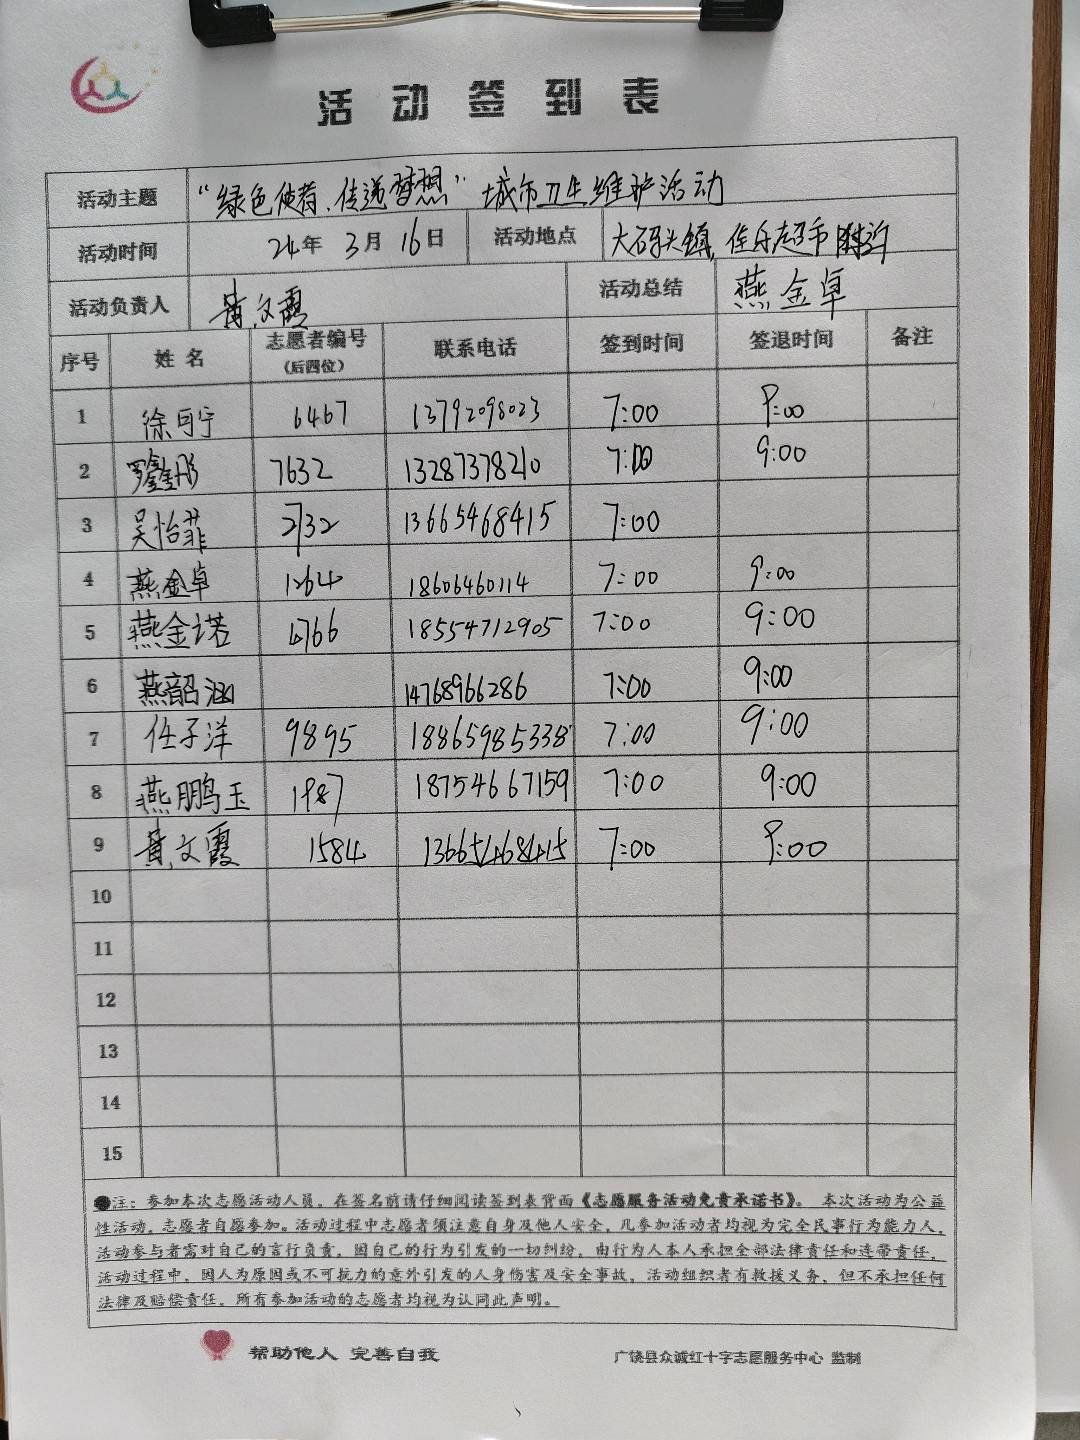 活动签到表
活动主题 “绿色使者、传递梦想”城市卫生维护活动
活动时间 24年 3月 16日 活动地点 大码头镇,佳乐超市附近
活动负责人 黄文霞 活动总结 燕金卓
序号 姓名 志愿者编号(后四位) 联系电话 签到时间 签退时间 备注
1 徐可宁 6467 13792098023 7:00 9:00
2 罗鑫彤 7632 13287378210 7:00 9:00
3 吴怡菲 2732 13665468415 7:00
4 燕金卓 1264 18606460114 7:00 9:00
5 燕金诺 4766 18554712905 7:00 9:00
6 燕韶涵 14768966286 7:00 9:00
7 任子洋 9895 18865985338 7:00 9:00
8 燕鹏玉 1987 18754667159 7:00 9:00
9 黄文霞 1584 13665468415 7:00 9:00
10
11
12
13
14
15
●注:参加本次志愿活动人员,在签名前请仔细阅读签到表背面《志愿服务活动免责承诺书》。 本次活动为公益
性活动,志愿者自愿参加。活动过程中志愿者须注意自身及他人安全,凡参加活动者均视为完全民事行为能力人,
活动参与者需对自己的言行负责,因自己的行为引发的一切纠纷,由行为人本人承担全部法律责任和连带责任。
活动过程中,因人为原因或不可抗力的意外引发的人身伤害及安全事故,活动组织者有救援义务,但不承担任何
法律及赔偿责任。所有参加活动的志愿者均视为认同此声明。
帮助他人 完善自我 广饶县众诚红十字志愿服务中心 监制